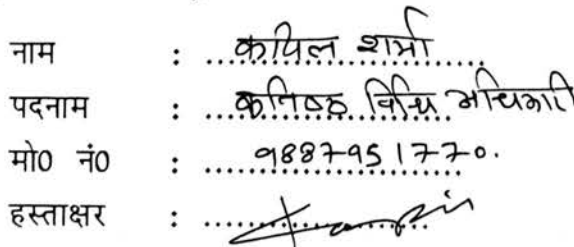 नाम : कपिल शर्मा
पदनाम : कनिष्ठ विधि अधिकारी
मो0 नं0 : 9887951770.
हस्ताक्षर :